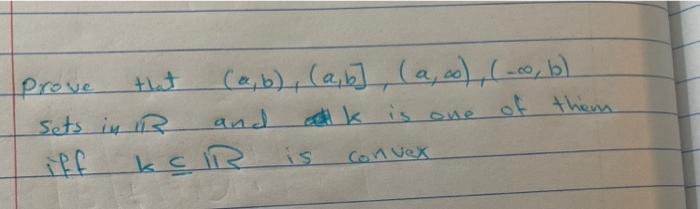 Prove that (a,b), (a,b], (a,∞), (-∞,b)
sets in ℝ and k is one of them
iff k ⊆ ℝ is convex